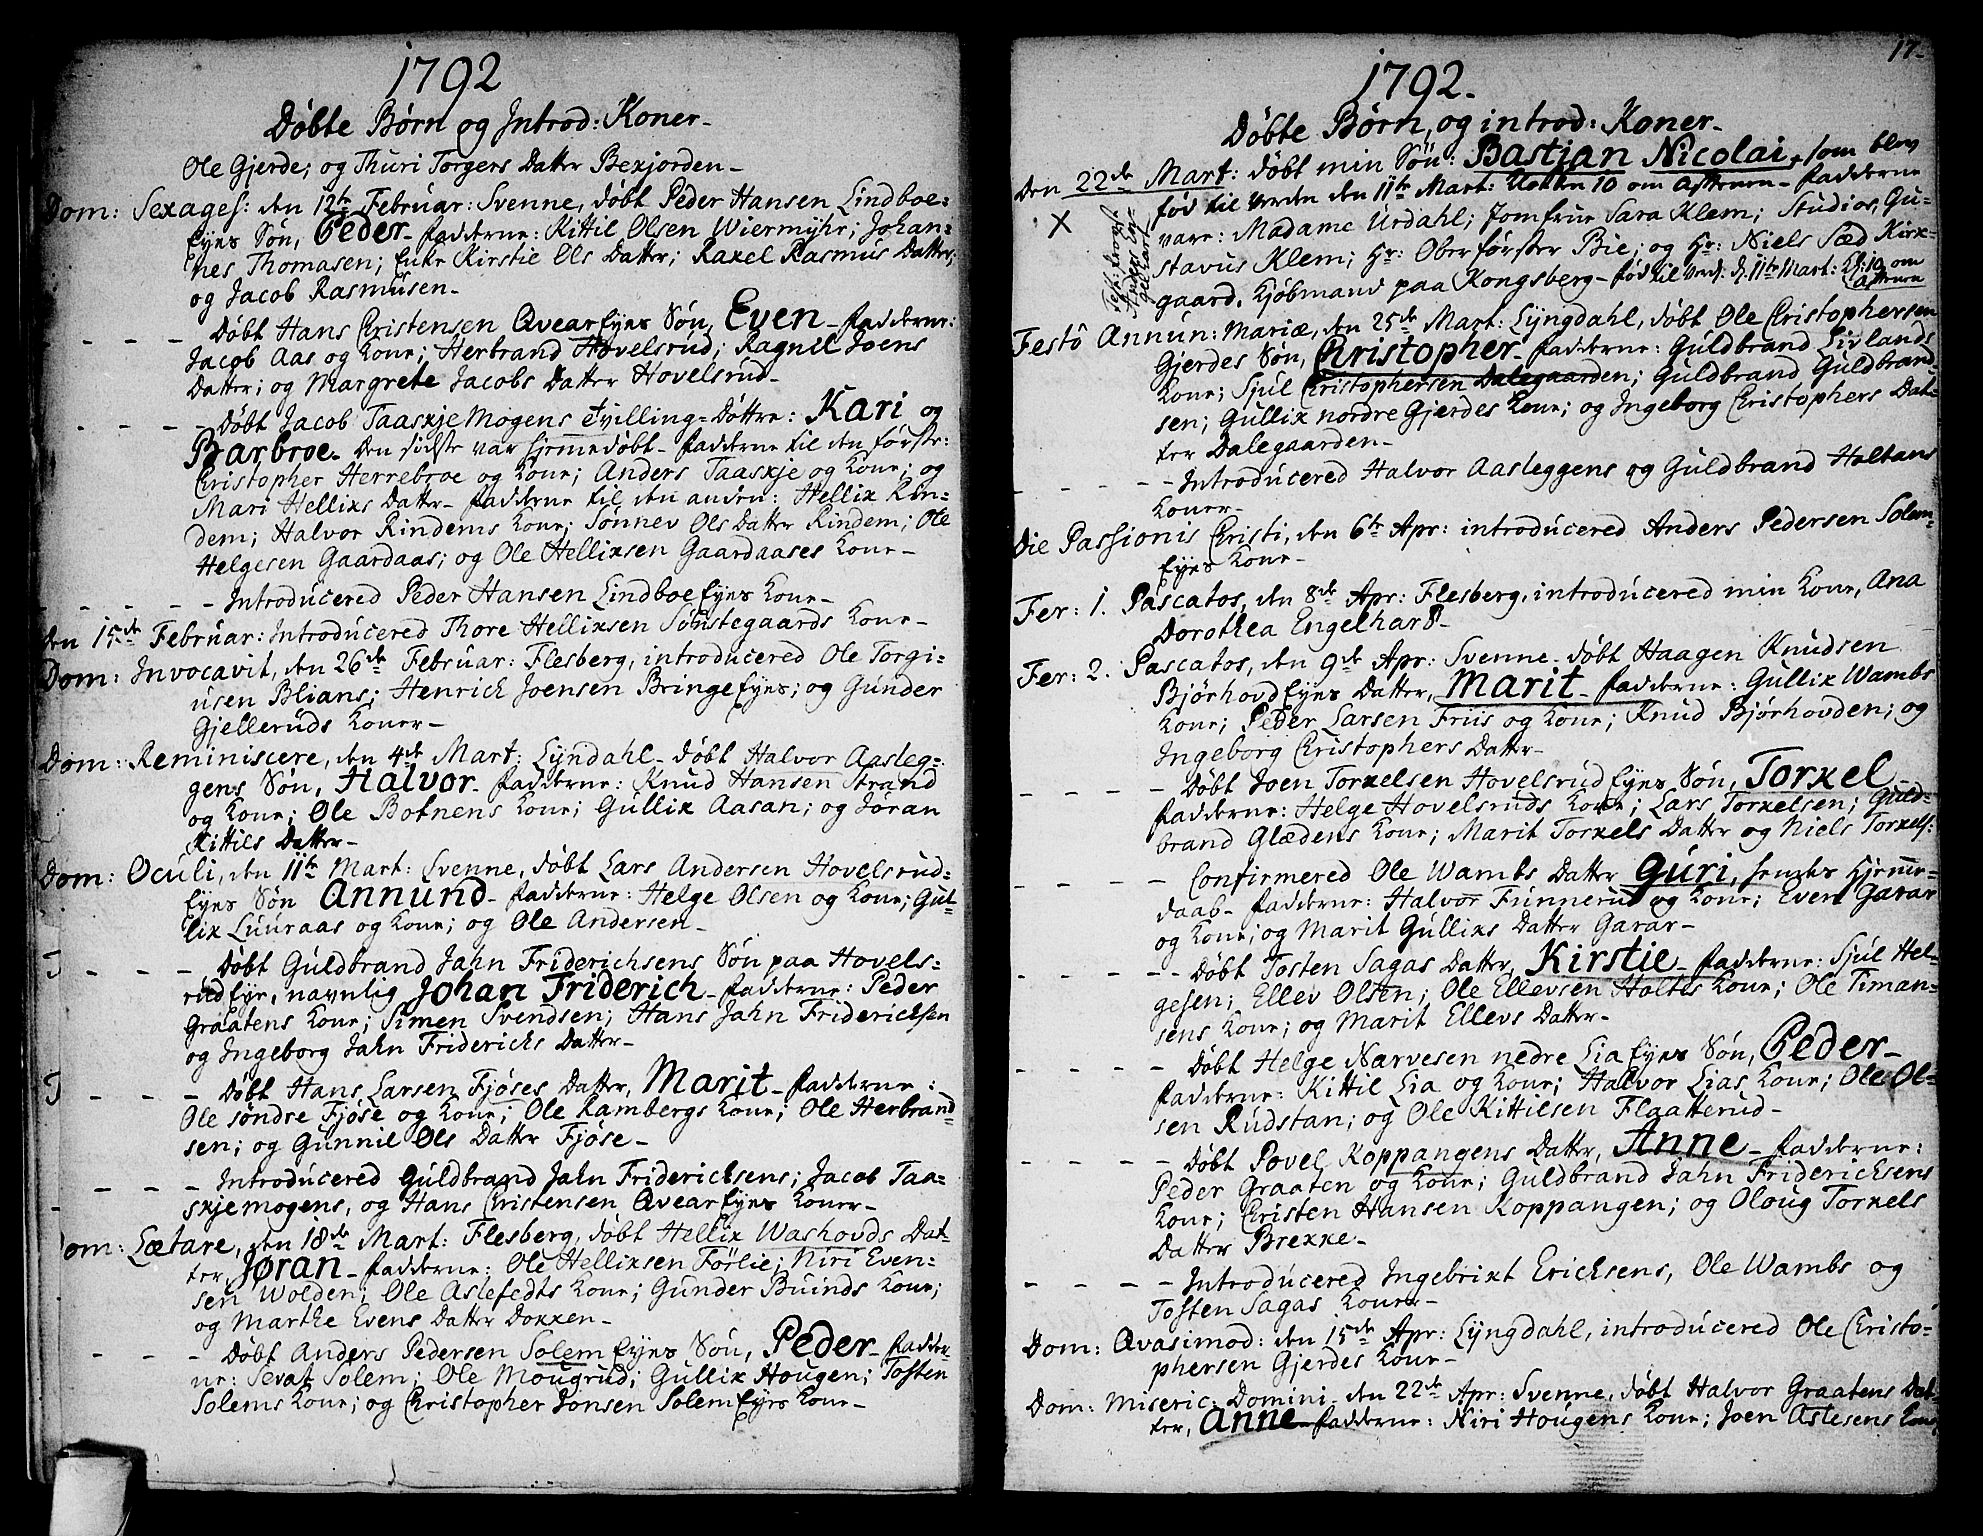 1792
Døbte Børn og Introd: Koner-
Ole Gjerde; og Thuri Torgers Datter Bexjorden-
Dom: Sexages: den 12te Februar: Svenne, døbt Peder Hansen Lindboe=
Eyes Søn, Peder- Fadderne: Kittil Olsen Wiermyhr; Johan=
nes Thomasen; Enke Kirstie Ols Datter; Raxel Rasmus Datter;
og Jacob Rasmusen-
- - - - Døbt Hans Christensen Qvear Eyes Søn, Even- Fadderne:
Jacob Aas og Kone; Herbrand Hovelsrud; Ragnil Joens
Datter; og Margrete Jacobs Datter Hovelsrud-
- - - - Døbt Jacob Taaskje Mogens Tvilling=Døttre: Kari og
Barbroe- Den sidste var hjemmedøbt- Fadderne til den første:
Christopher Herrebroe og Kone; Anders Taaskje og Kone; og
Mari Hellixs Datter- Fadderne til den anden: Hellix Rin=
dem; Halvor Rindems Kone; Sønnev Ols Datter Rindem; Ole
Helgesen Gaardaas; og Ole Hellixsen Gaardaases Kone-
- - - - Introducered Peder Hansen Lindboe Eyes Kone-
den 15de Februar: Introducered Thore Hellixsen Sønstegaards Kone-
Dom: Invocavit, den 26de Februar: Flesberg, introducered Ole Torgi=
usen Blians; Henrick Joensen Bringe Eyes; og Gunder
Gjelleruds Koner-
Dom: Reminiscere, den 4de Mart: Lyndahl- døbt Halvor Aasleg=
gens Søn, Halvor- Fadderne: Knud Hansen Strand
og Kone; Ole Botnens Kone; Gullix Aasan; og Jøran
Kittils Datter-
Dom: Oculi, den 11te Mart: Svenne, døbt Lars Andersen Hovelsrud=
Eyes Søn Annund- Fadderne: Helge Olsen og Kone; Gul=
lix Luuraas og Kone; og Ole Andersen-
T - - - Døbt Guldbrand Jahn Friderichsens Søn paa Hovels=
rud Eye, navnlig Johan Friderich- Fadderne: Peder
Graatens Kone; Simen Svendsen; Hans Jahn Friderichsen
og Ingeborg Jahn Friderichs Datter-
T - - - Døbt Hans Larsen Fjøses Datter, Marit- Fadderne:
Ole søndre Fjøse og Kone; Ole Rambergs Kone; Ole Herbrand=
sen; og Gunnil Ols Datter Fjøse-
- - - Introducered Guldbrand Jahn Friderichsens; Jacob Taa=
skjemogens, og Hans Christensen Qvear Eyes Koner-
Dom: Lætare, den 18de Mart: Flesberg, døbt Hellix Washovds Dat=
ter, Jøran- Fadderne: Ole Hellixsen Førlie; Niri Even=
sen Wolden; Ole Aslefedts Kone; Gunder Buinds Kone;
og Marthe Evens Datter Doxxen-
- - - Døbt Anders Pedersen Solem Eyes Søn, Peder- Fadder=
ne: Sevat Solem; Ole Mougrud; Gullix Hougen; Tosten
Solems Kone; og Christopher Jonsen Solem Eyes Kone-
17-
1792-
Døbte Børn, og introd: Koner-
Den 22de Mart: døbt min Søn: Bastjan Nicolai, som blev
X
fød til Verden den 11te Mart: Klokken 10 om Aftenen- Fadderne
vare: Madame Urdahl; Jomfrue Sara Klem; Studios, Gu=
stavus Klem; Hr: Oberførster Bie; og Hr: Niels Sæd Kirx=
gaard, Kjøbmand paa Kongsberg- fød til Verd: d. 11te Mart: Kl: 10 om
Aftenen
Festo Annun: Mariæ, den 25de Mart: Lyngdahl, døbt Ole Christophersen
Gjerdes Søn, Christopher- Fadderne: Guldbrand Livlands
Kone; Sjul Christophersen Dalegaarden; Guldbrand Guldbrand=
sen; Gullix nordre Gjerdes Kone; og Ingeborg Christophers Dat=
ter Dalegaarden-
- - - - Introducered Halvor Aasleggens og Guldbrand Holtans
Koner-
Die Passionis Christi, den 6te Apr: introducered Anders Pedersen Solem=
Eyes Kone-
Fer: 1. Pascatos, den 8de Apr: Flesberg, introducered min Kone, Ana
Dorothea Engelhart-
Fer: 2. Pascatos, den 9de Apr: Svenne- døbt Haagen Knudsen
Bjørhovd Eyes Datter, Marit- Fadderne: Gullix Wambs
Kone; Peder Larsen Friis og Kone; Knud Bjørhovden; og
Ingeborg Christophers Datter-
- - - - Døbt Joen Torxelsen Hovelsrud Eyes Søn, Torxel-
Fadderne: Helge Hovelsruds Kone; Lars Torxelsen; Guld=
brand Glædens Kone; Marit Torxels Datter og Niels Torxels:
- - - - Confirmered Ole Wambs Datter Guri, hendes Hjemme=
daab- Fadderne: Halvor Funnerud og Kone; Even Garar
og Kone; og Marit Gullixs Datter Garar-
- - - - Døbt Tosten Sagas Datter, Kirstie- Fadderne: Sjul Hel=
gesen; Ellev Olsen; Ole Ellevsen Holtes Kone; Ole Timan=
sens Kone; og Marit Ellevs Datter-
- - - - Døbt Helge Narvesen nedre Lia Eyes Søn, Peder-
Fadderne: Kittil Lia og Kone; Halvor Lias Kone; Ole Ol=
sen Rudstan; og Ole Kittilsen Flaatterud-
- - - - Døbt Povel Koppangens Datter, Anne- Fadderne:
Peder Graaten og Kone; Guldbrand Jahn Friderichsens
Kone; Christen Hansen Koppangen; og Oloug Torxels
Datter Brexxe-
- - - - Introducered Ingebrixt Ericksens, Ole Wambs og
Tosten Sagas Koner-
Dom: Qvasimod: den 15de Apr: Lyngdahl, introducered Ole Christo=
phersen Gjerdes Kone-
Dom: Miseric: Domini- den 22de Apr: Svenne, døbt Halvor Graatens Dat=
ter, Anne- Fadderne: Niri Hougens Kone; Joen Aslesens Kone;